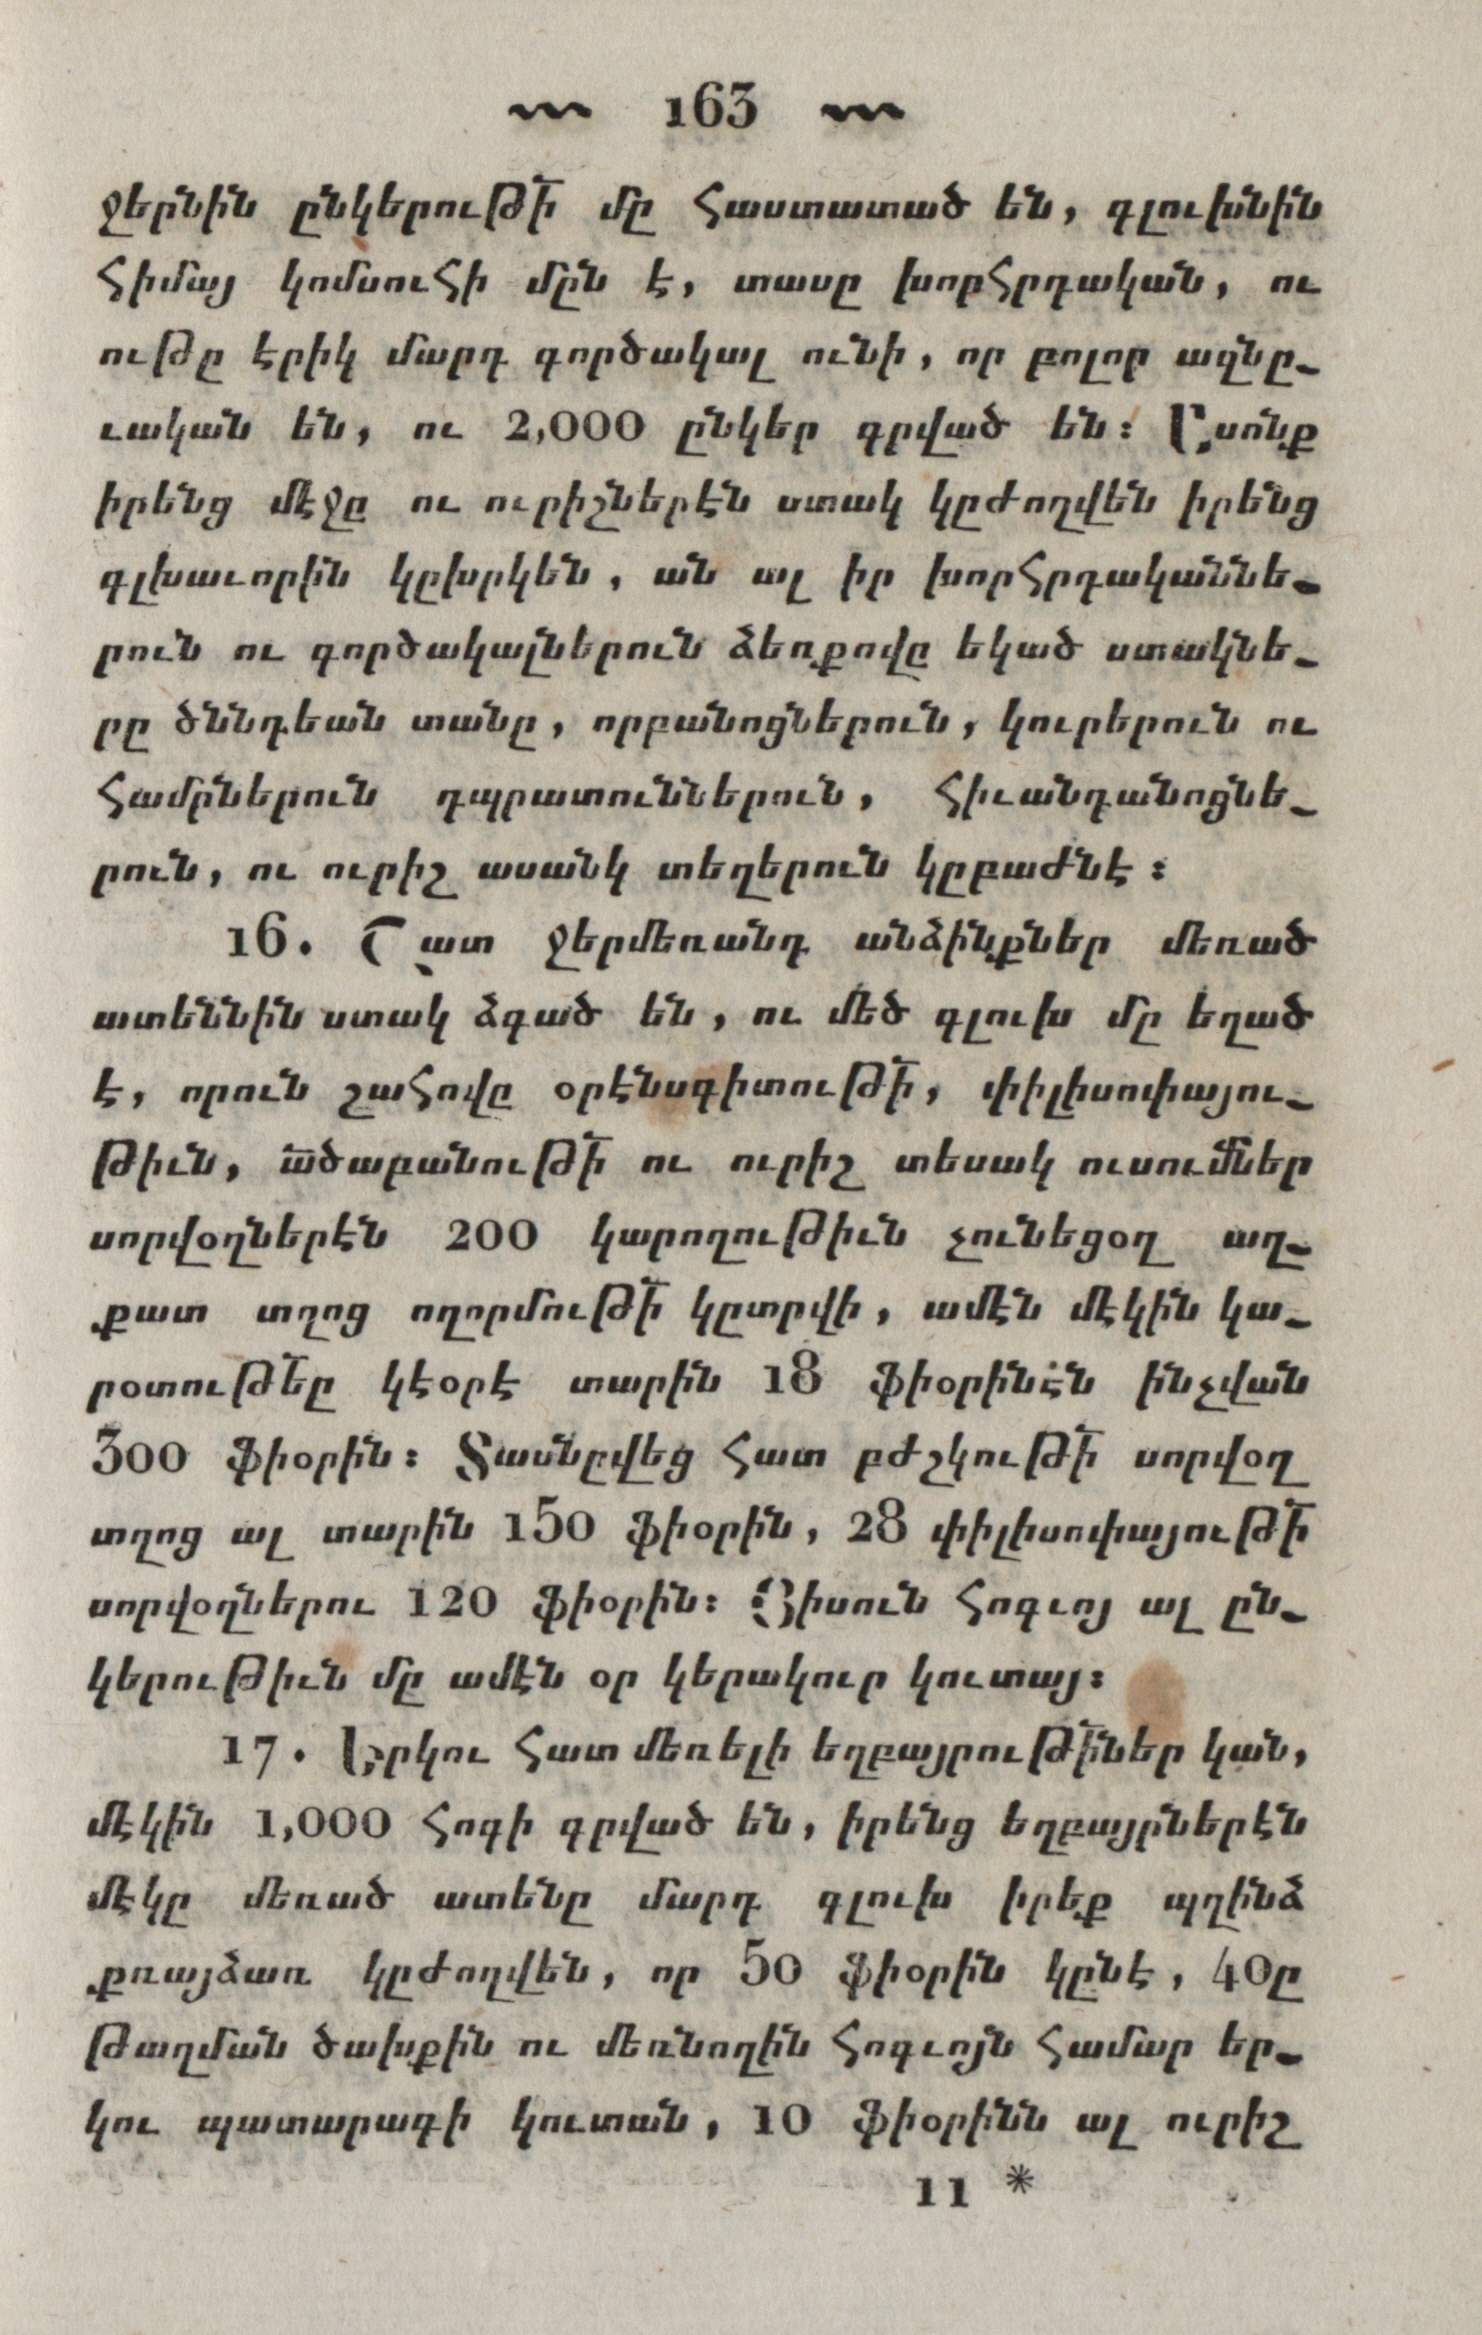 163
ջերնին ընկերութի՟ մը հաստատած են, գլուխնին
հիմայ կոմսուհի մըն է, տասը խորհրդական, ու
ութը էրիկ մարդ գործակալ ունի, որ բոլոր ազնը֊
ւական են, ու 2,000 ընկեր գրված են։ Ըսոնք
իրենց մէջը ու ուրիշներէն ստակ կըժողվեն իրենց
գլխաւորին կըխրկեն, ան ալ իր խորհրդականնե֊
րուն ու գործակալներուն ձեռքովը եկած ստակնե֊
րը ծննդեան տանը, որբանոցներուն, կուրերուն ու
համրներուն դպրատուններուն, հիւանդանոցնե֊
րուն, ու ուրիշ ասանկ տեղերուն կըբաժնէ։
16. Շատ ջերմեռանդ անձինքներ մեռած
ատեննին ստակ ձգած են, ու մեծ գլուխ մը եղած
է, որուն շահովը օրէնսգիտութի՟, փիլիսոփայու֊
թիւն, ա՟ծաբանութի՟ ու ուրիշ տեսակ ուսումներ
սորվօղներէն 200 կարողութիւն չունեցօղ աղ֊
քատ տղոց ողորմութի՟ կըտրվի, ամէն մէկին կա֊
րօտութե՟ը կէօրէ տարին 18 ֆիօրինէն ինչվան
300 ֆիօրին։ Տասնըվեց հատ բժշկութի՟ սորվօղ
տղոց ալ տարին 150 ֆիօրին, 28 փիլիսոփայութի՟
սորվօղներու 120 ֆիօրին։ Յիսուն հոգւոյ ալ ըն֊
կերութիւն մը ամէն օր կերակուր կուտայ։
17. Երկու հատ մեռելի եղբայրութի՟ներ կան,
մէկին 1,000 հոգի գրված են, իրենց եղբայրներէն
մէկը մեռած ատենը մարդ գլուխ իրեք պղինձ
քռայձառ կըժողվեն, որ 50 ֆիօրին կընէ, 40ը
թաղման ծախքին ու մեռնողին հոգւոյն համար եր֊
կու պատարագի կուտան, 10 ֆիօրինն ալ ուրիշ
11 *